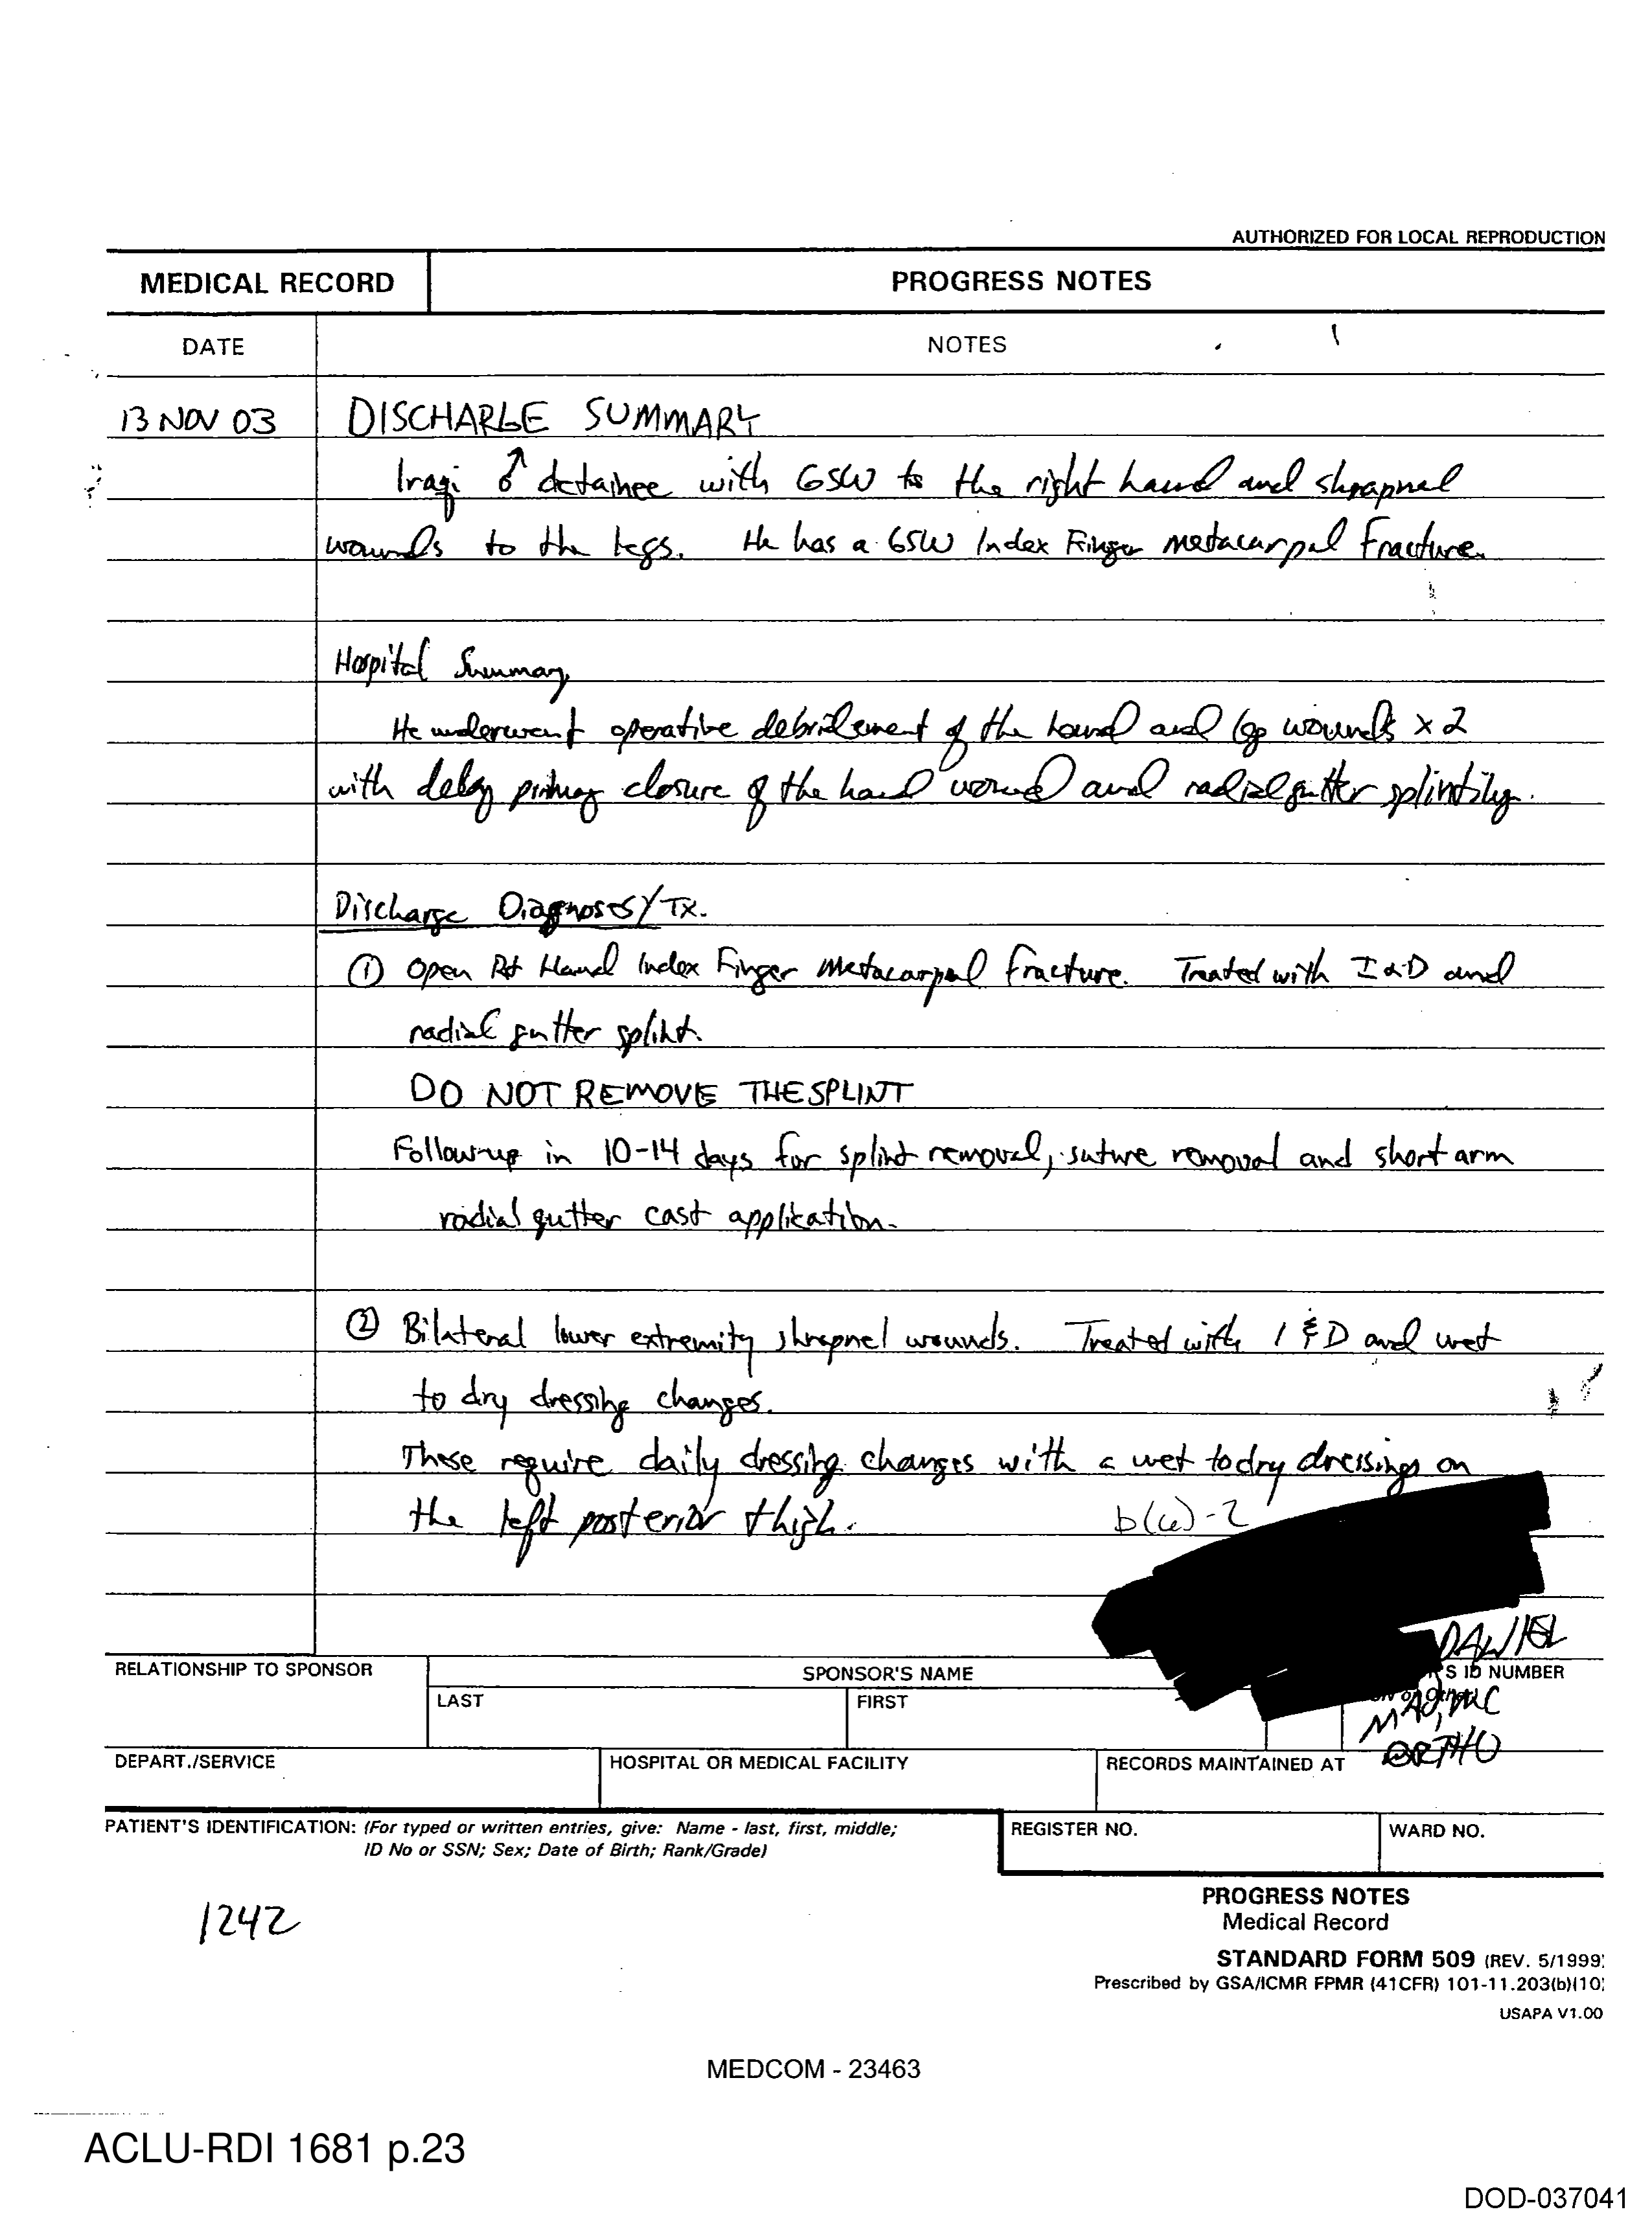 AUTHORIZED FOR LOCAL REPRODUCTION
MEDICAL RECORD PROGRESS NOTES
DATE NOTES
13 NOV 03 DISCHARGE SUMMARY
Iraqi ♂ detainee with GSW to the right hand and shrapnel
wounds to the legs. He has a GSW Index Finger metacarpal Fracture.
Hospital Summary
He underwent operative debridement of the hand and leg wounds x 2
with delay primary closure of the hand wound and radial gutter splinting.
Discharge Diagnoses/Tx.
① Open Rt Hand Index Finger Metacarpal Fracture. Treated with I&D and
radial gutter splint.
DO NOT REMOVE THE SPLINT
Follow-up in 10-14 days for splint removal, suture removal and short arm
radial gutter cast application.
② Bilateral lower extremity shrapnel wounds. Treated with I & D and wet
to dry dressing changes.
These require daily dressing changes with a wet to dry dressings on
the left posterior thigh.
b(6)-2
RELATIONSHIP TO SPONSOR SPONSOR'S NAME S ID NUMBER
LAST FIRST
MAJ, MC
ORTHO
DEPART./SERVICE HOSPITAL OR MEDICAL FACILITY RECORDS MAINTAINED AT
PATIENT'S IDENTIFICATION: (For typed or written entries, give: Name - last, first, middle;
ID No or SSN; Sex; Date of Birth; Rank/Grade)
REGISTER NO. WARD NO.
1242
PROGRESS NOTES
Medical Record
STANDARD FORM 509 (REV. 5/1999)
Prescribed by GSA/ICMR FPMR (41CFR) 101-11.203(b)(10)
USAPA V1.00
MEDCOM - 23463
ACLU-RDI 1681 p.23
DOD-037041